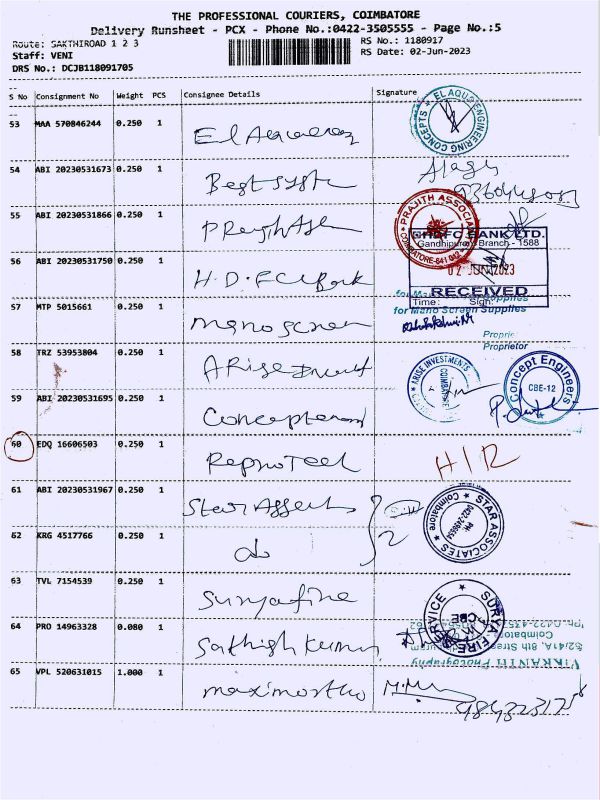 THE PROFESSIONAL COURIERS, COIMBATORE
Delivery Runsheet - PCX - Phone No.:0422-3505555 - Page No.:5
Route: SAKTHIROAD 1 2 3
RS No.: 1180917
Staff: VENI
RS Date: 02-Jun-2023
DRS No.: DCJB118091705
S No Consignment No Weight PCS Consignee Details Signature
53 MAA 570846244 0.250 1
EL AQUA ENGINEERING CONCEPTS
54 ABI 20230531673 0.250 1 Best syste
55 ABI 20230531866 0.250 1
PRAJITH ASSOCIA
COIMBATORE-641 012
HDFC BANK LTD.
Gandhipuram Branch - 1588
02 JUN 2023
RECEIVED
Time: Sign:
56 ABI 20230531750 0.250 1 H.D.F.C Bank
for Mano Screen Supplies
57 MTP 5015661 0.250 1 Mano screen
Proprietor
58 TRZ 53953804 0.250 1 Arise Invest
ARISE INVESTMENTS
COIMBATORE
59 ABI 20230531695 0.250 1
Concept Engineers
CBE-12
60 EDQ 16606503 0.250 1 Repro Tech
61 ABI 20230531967 0.250 1 Star Assoc
STAR ASSOCIATES
Coimbatore
62 KRG 4517766 0.250 1 do 2
63 TVL 7154539 0.250 1 Suryafire
SURYA FIRE SERVICE
CBE
64 PRO 14963328 0.080 1 Sathish Kumar
52/41A, 8th Street
Coimbatore
VIKRANTH Photography
65 VPL 520631015 1.000 1 Maximortho